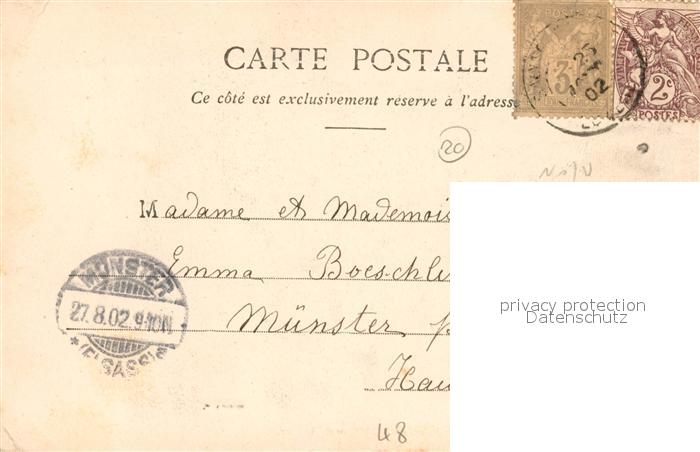 CARTE POSTALE
Ce côté est exclusivement réservé à l'adresse
3
2c
POSTES
25
02
20
Madame et Mademois
Emma Boeschli
Münster p
Hau
MÜNSTER
27.8.02.9-10N
* (ELSASS) *
privacy protection
Datenschutz
48